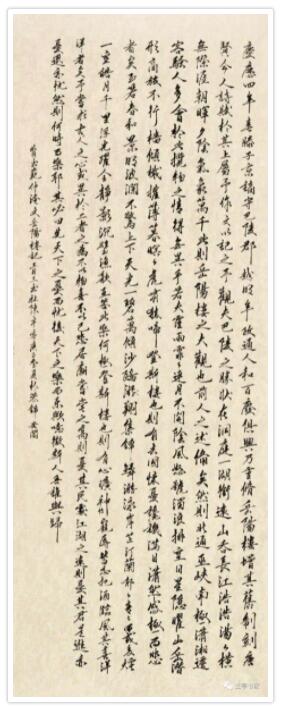 慶曆四年春滕子京謫守巴陵郡越明年政通人和百廢俱興乃重修岳陽樓增其舊制刻唐
賢今人詩賦於其上屬予作文以記之予觀夫巴陵之勝狀在洞庭一湖銜遠山吞長江浩浩湯湯橫
無際涯朝暉夕陰氣象萬千此則岳陽樓之大觀也前人之述備矣然則北通巫峽南極瀟湘遷
客騷人多會於此攬物之情得無異乎若夫霪雨霏霏連月不開陰風怒號濁浪排空日星隱曜山岳潛
形商旅不行檣傾楫摧薄暮冥冥虎嘯猿啼登斯樓也則有去國懷鄉憂讒畏譏滿目蕭然感極而悲
者矣至若春和景明波瀾不驚上下天光一碧萬頃沙鷗翔集錦鱗游泳岸芷汀蘭郁郁青青而或長煙
一空皓月千里浮光躍金靜影沉璧漁歌互答此樂何極登斯樓也則有心曠神怡寵辱皆忘把酒臨風其喜洋
洋者矣予嘗求古仁人之心或異於二者之爲以物喜不以己悲居廟堂之高則憂其民處江湖之遠則憂其君是進亦
憂退亦憂然則何時而樂耶其必曰先天下之憂而憂後天下之樂而樂歟噫微斯人吾誰與歸
范仲淹文岳陽樓記